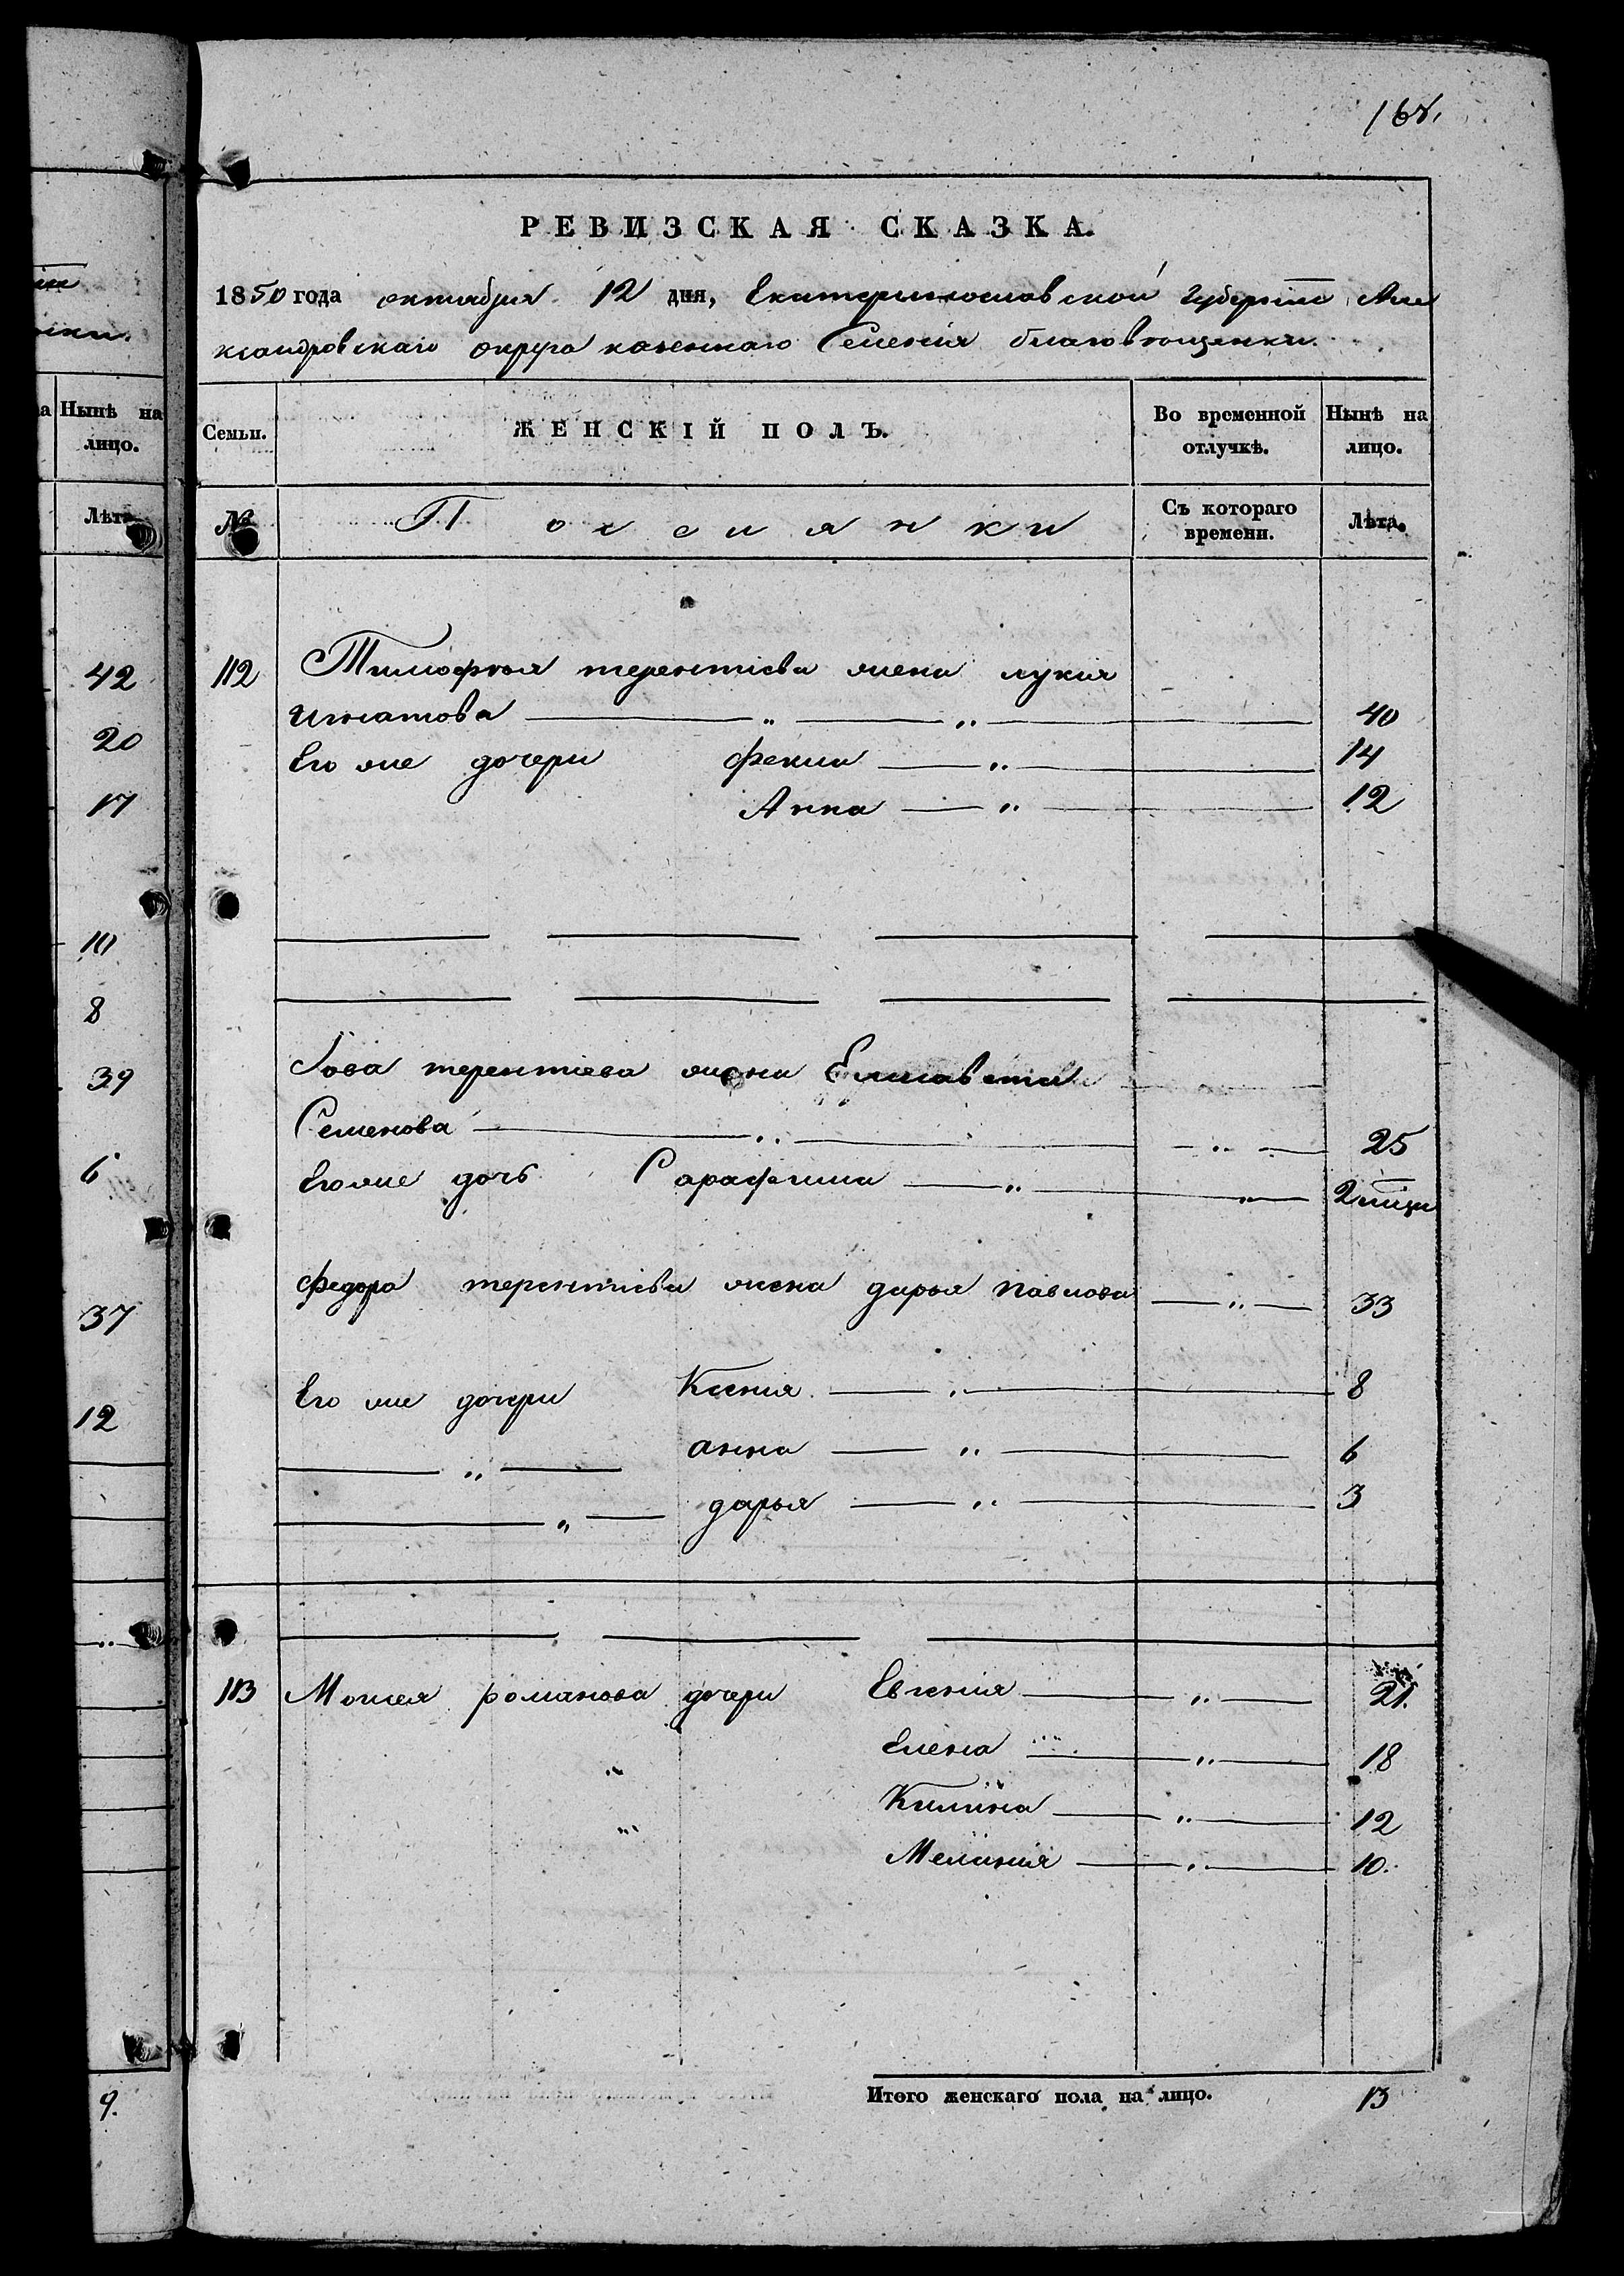 168.
РЕВИЗСКАЯ СКАЗКА.
1850 года октября 12 дня, Екатеринославской Губерніи Але
ксандровскаго округа казеннаго Селенія благовѣщенки.
Семьи.
ЖЕНСКІЙ ПОЛЪ.
Во временной отлучкѣ.
Нынѣ на лицо.
№
Поселянки
Съ котораго времени.
Лѣта.
112 Тимофѣя терентіева жена лукія
Игнатова — „ — „ — 40
Его же дочери Фекла — „ — 14
Анна — „ — 12
Іова терентіева жена Елисавета
Семенова — „ — „ — 25
Его же дочь Сарафима — „ — „ — 2 мѣсяц
Федора терентіева жена дарья павлова — „ — 33
Его же дочери Ксенія — „ — 8
— „ — анна — „ — 6
— „ — дарья — „ — 3
113 Моисея романова дочери Евгенія — „ — 21.
„ Елена — „ — 18
„ Килина — „ — 12
Меланія — „ — 10.
Итого женскаго пола на лицо. 13
Нынѣ на
лицо.
Лѣта
42
20
17
10
8
39
6
37
12
9.